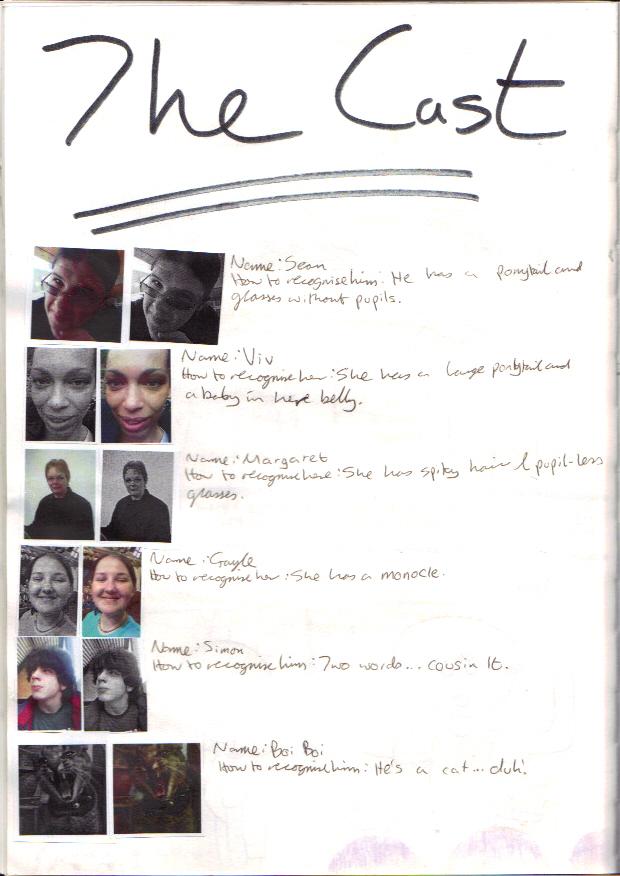 The Cast
Name: Sean
How to recognise him: He has a ponytail and
glasses without pupils.
Name: Viv
How to recognise her: She has a large ponytail and
a baby in here belly.
Name: Margaret
How to recognise here: She has spiky hair & pupil-less
glasses.
Name: Gayle
How to recognise her: She has a monocle.
Name: Simon
How to recognise him: Two words... cousin It.
Name: Boi Boi
How to recognise him: He's a cat... duh!